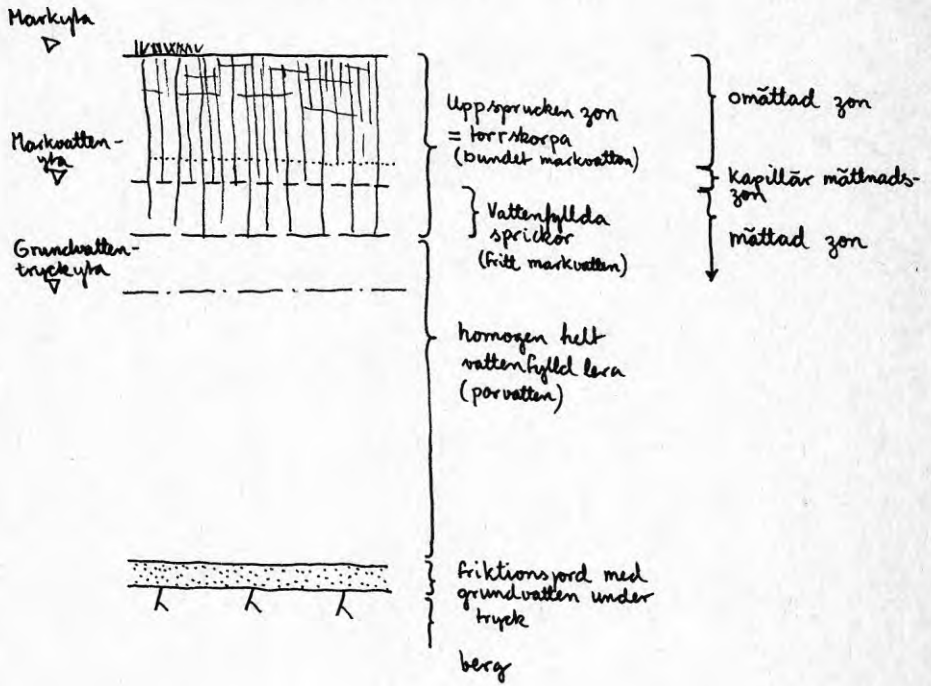 Markyta
Markvatten-
yta
Grundvatten-
tryckyta
Uppsprucken zon
= torrskorpa
(bundet markvatten)
Vattenfyllda
sprickor
(fritt markvatten)
homogen helt
vattenfylld lera
(porvatten)
friktionsjord med
grundvatten under
tryck
berg
omättad zon
kapillär mättnads-
zon
mättad zon